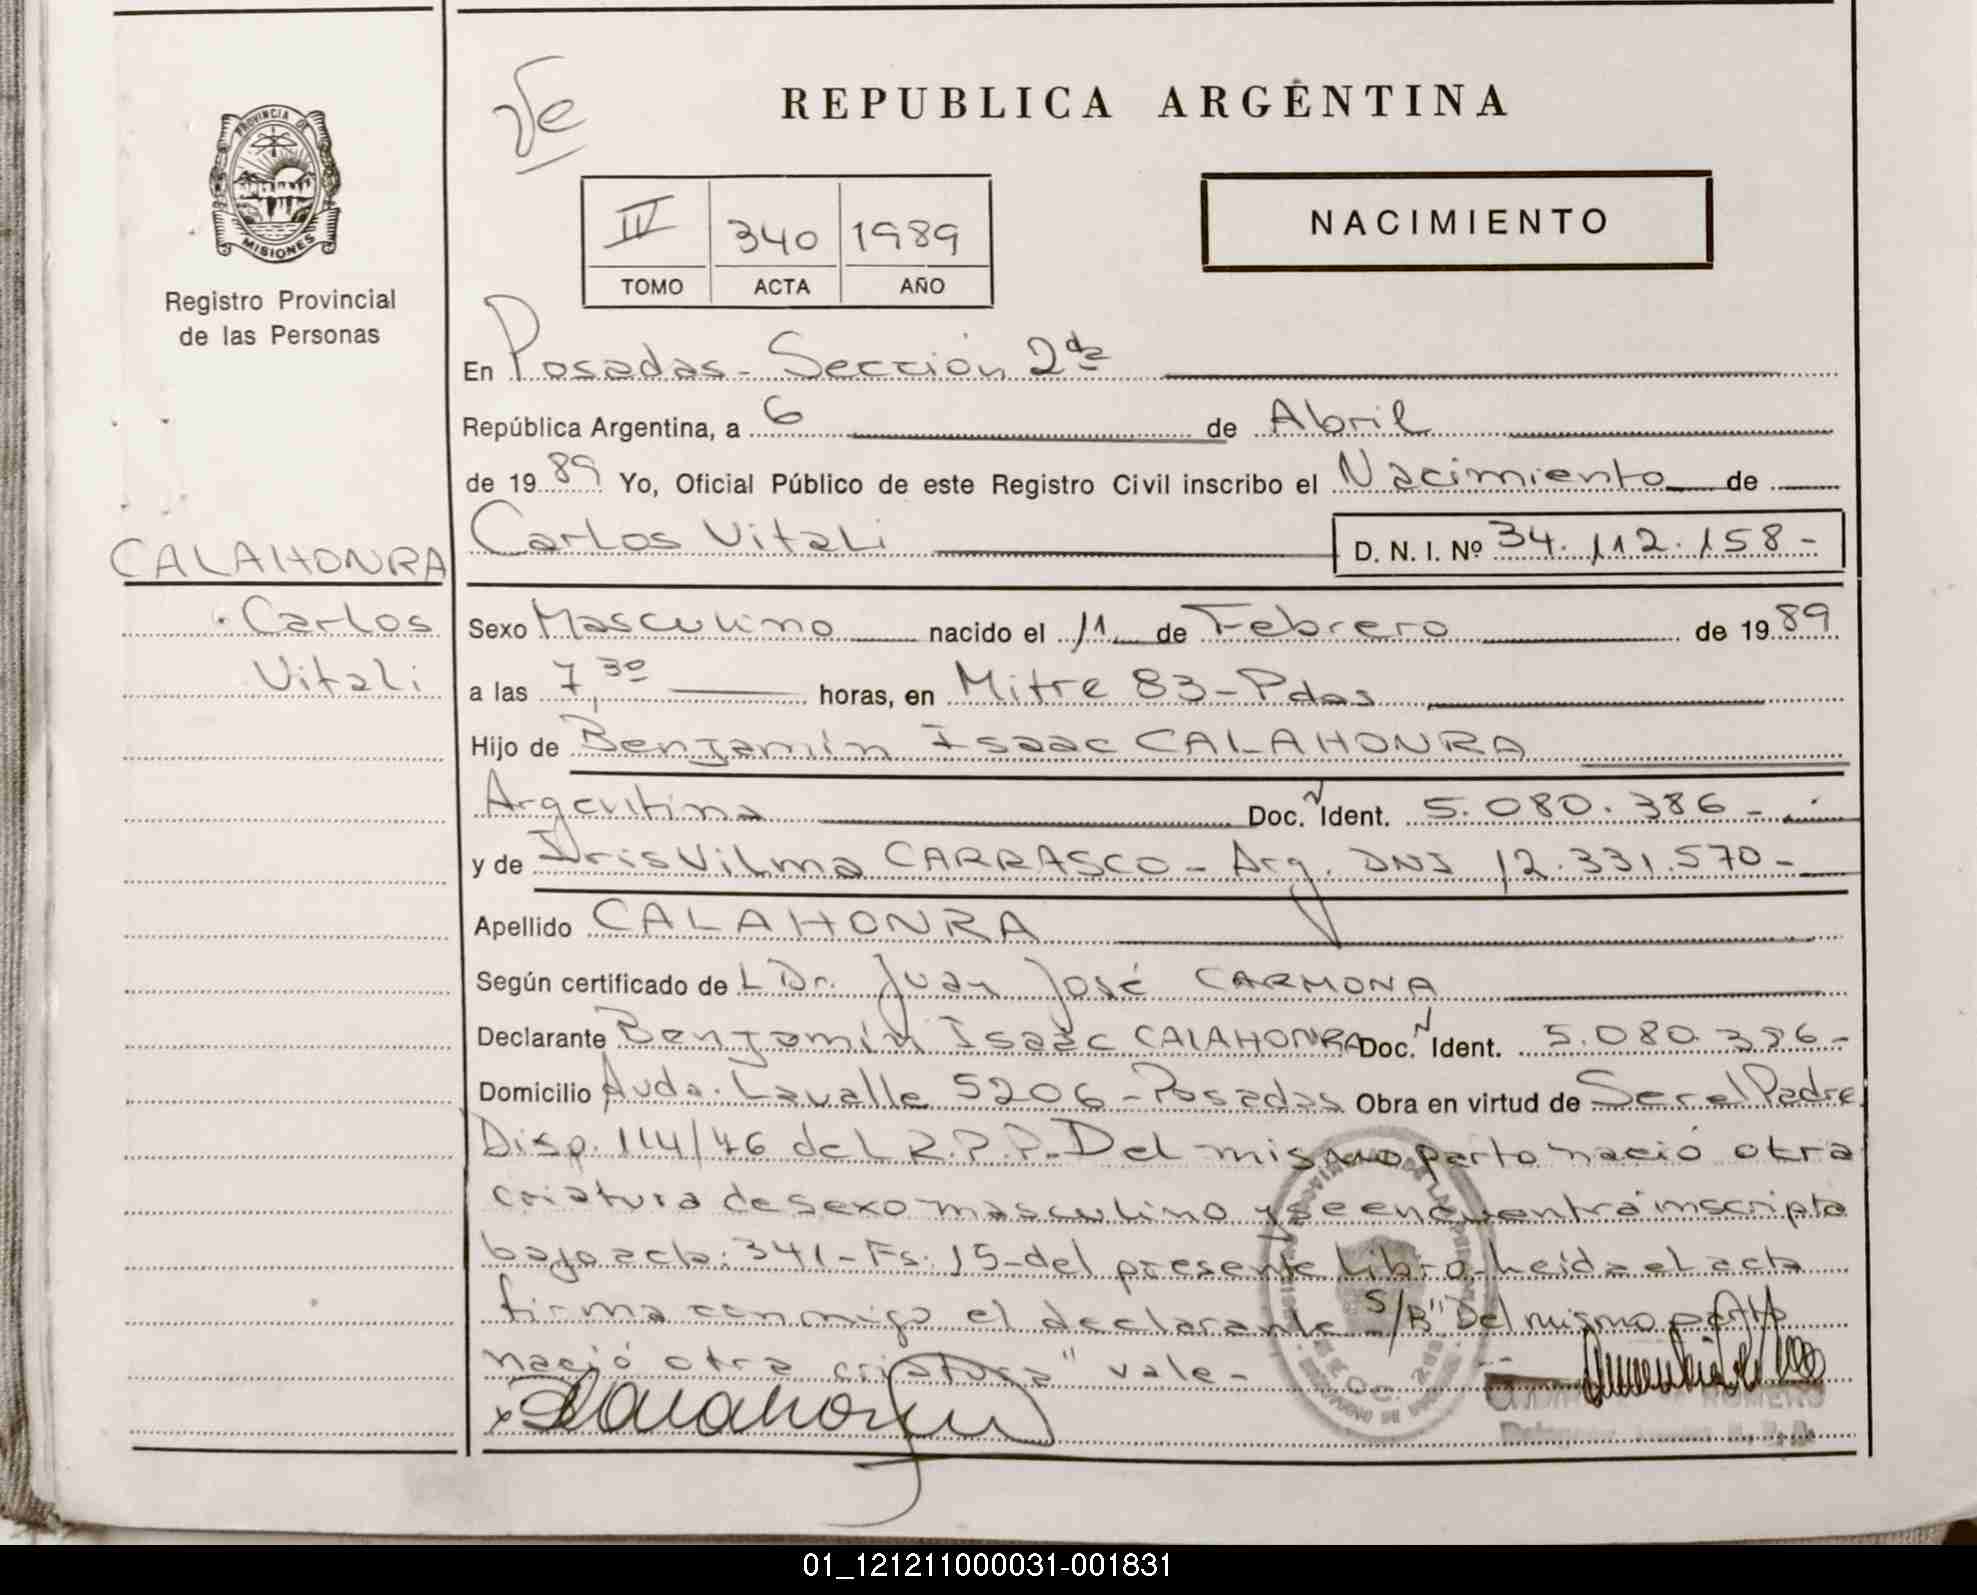 REPUBLICA ARGENTINA
PROVINCIA DE
MISIONES
Registro Provincial
de las Personas
IV 340 1989
TOMO ACTA AÑO
NACIMIENTO
En Posadas - Sección 2da
República Argentina, a 6 de Abril
de 1989 Yo, Oficial Público de este Registro Civil inscribo el Nacimiento de
Carlos Vitali D. N. I. Nº 34.112.158-
CALAHONRA
Carlos
Vitali
Sexo Masculino nacido el 11 de Febrero de 1989
a las 7,30 horas, en Mitre 83 - Pdas
Hijo de Benjamín Isaac CALAHONRA
Argentina Doc. N Ident. 5.080.386-
y de Iris Vilma CARRASCO - Arg. DNI 12.331.570-
Apellido CALAHONRA
Según certificado de L Dr. Juan José CARMONA
Declarante Benjamín Isaac CALAHONRA Doc. N Ident. 5.080.386-
Domicilio Avda. Lavalle 5206 - Posadas Obra en virtud de Ser el Padre
Disp. 114/76 del R.P.P. Del mismo parto nació otra
criatura de sexo masculino y se encuentra inscripta
bajo acta: 341 - Fs: 15 - del presente Libro - Leída el acta
firma conmigo el declarante S/B "Del mismo parto
nació otra criatura" vale -
ROMERO
01_121211000031-001831